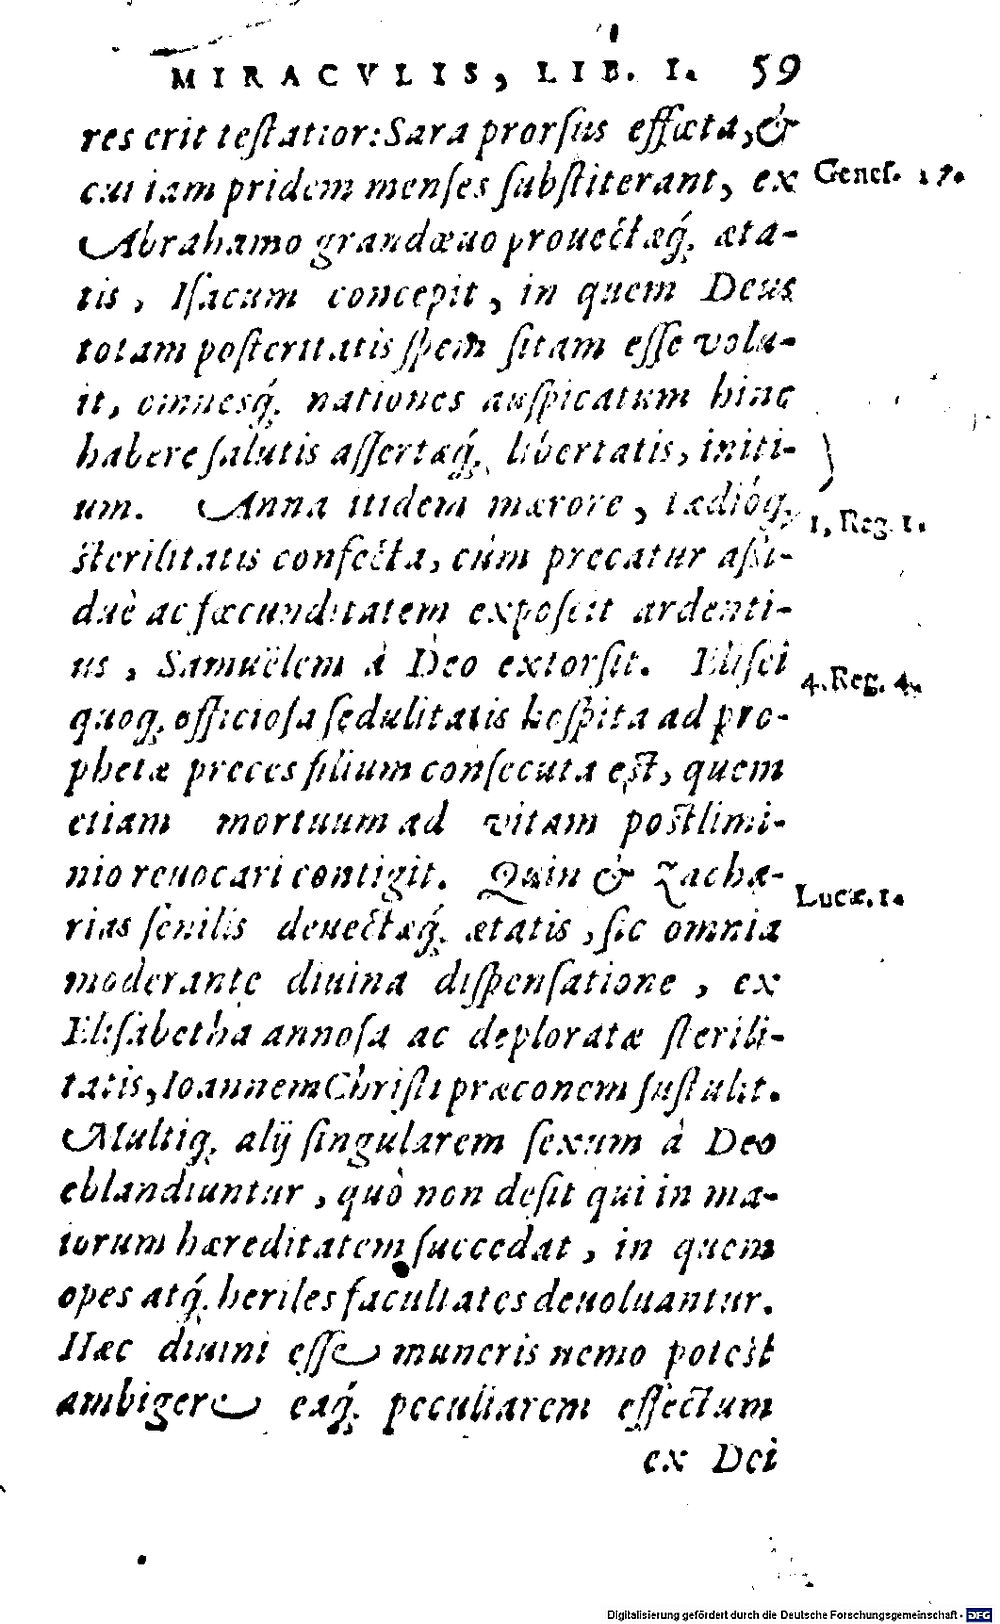 MIRACVLIS, LIB. I. 59
res erit testatior: Sara prorsus effœta, &
cui iam pridem menses substiterant, ex
Genes. 17.
Abrahamo grandæuo prouectæq́; æta-
tis, Isacum concepit, in quem Deus
totam posteritatis spem sitam esse volu-
it, omnesq́; nationes auspicatum hinc
habere salutis assertæq́; libertatis, initi-
um. Anna itidem mærore, tædióq;
1. Reg. 1.
sterilitatis confecta, cùm precatur aßi-
duè ac fœcunditatem exposcit ardenti-
us, Samuëlem à Deo extorsit. Elisei
4. Reg. 4.
quoq; officiosa sedulitatis hospita ad pro-
phetæ preces filium consecuta est, quem
etiam mortuum ad vitam postlimi-
nio reuocari contigit. Quin & Zacha-
Lucæ. 1.
rias senilis deuectæq́; ætatis, sic omnia
moderante diuina dispensatione, ex
Elisabetha annosa ac deploratæ sterili-
tatis, Ioannem Christi præconem sustulit.
Multiq; alij singularem sexum à Deo
eblandiuntur, quò non desit qui in ma-
iorum hæreditatem succedat, in quem
opes atq́; heriles facultates deuoluantur.
Hæc diuini esse muneris nemo potest
ambigere eaq́; peculiarem effectum
ex Dei
Digitalisierung gefördert durch die Deutsche Forschungsgemeinschaft - DFG